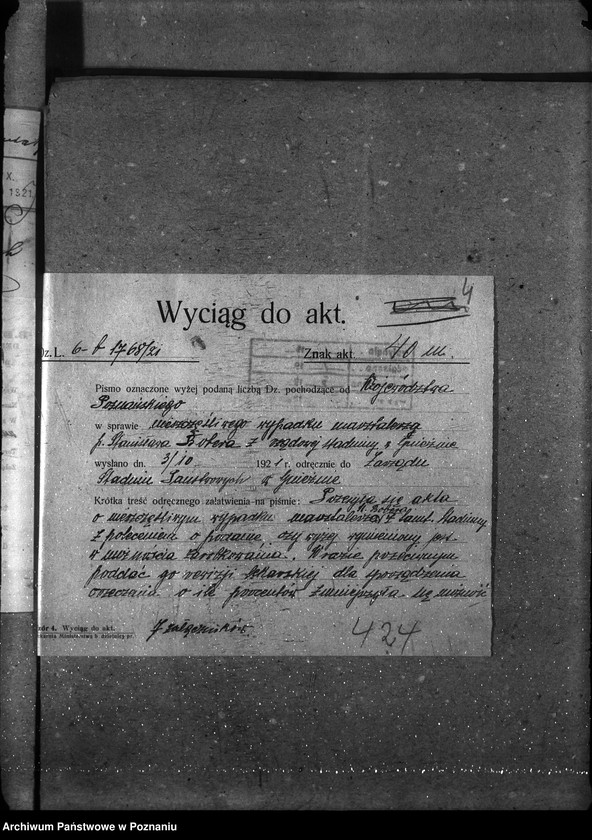 4
Wyciąg do akt.
Dz. L. 6-b 1768/21
Znak akt. 40 m.
Pismo oznaczone wyżej podaną liczbą Dz. pochodzące od Województwa
Poznańskiego
w sprawie nieszczęśliwego wypadku masztalerza
p. Stanisława Bobera z rządowej stadniny w Gnieźnie
wysłano dn. 3/10 1921 r. odręcznie do Zarządu
Stadnin w Gnieźnie
Krótka treść odręcznego załatwienia na piśmie: Przesyła się akta
o nieszczęśliwym wypadku masztalerza St. Bobera z tamt. Stadniny
z poleceniem o podanie, czy wyżej wymieniony jest
w możności zarobkowania. W razie przeciwnym
poddać go rewizji lekarskiej dla sporządzenia
orzeczenia o ile procentów zmniejszyła się możność
7 załączników
424
Wyciąg do akt.
X.
1921
Archiwum Państwowe w Poznaniu